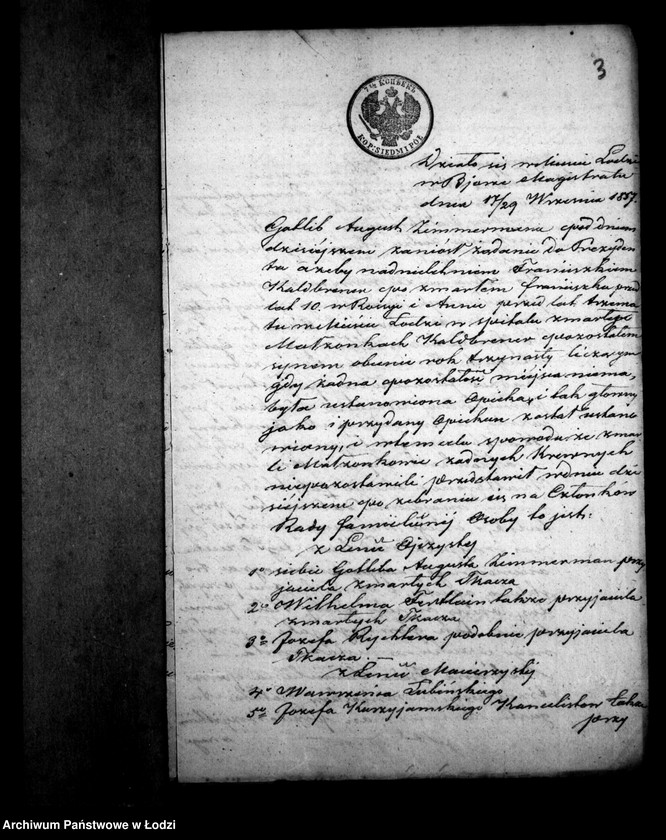 3
7½ КОПѢЕКЪ
KOP: SIEDM I PÓŁ
Działo się w Mieście Łodzi
w Bjorze Magistratu
dnia 17/29 Września 1857.
Gotlib August Zimmermann pod dniem
dzisiejszem zaniósł żądanie do Prezyden
ta ażeby nad nieletniem Franciszkiem
Kaldbrener po zmarłem Franciszku przed
lat 10. w Rossyi i Annie przed lat trzema
tu w Mieście Łodzi w Szpitalu zmarłych
Małżonkach Kaldbrener pozostałem
synem obecnie rok trzynasty liczącym
gdy żadna pozostałość miejsca niema,
była ustanowiona Opieka, i tak główny
jako i przydany Opiekun został ustano
wiony, i w tem celu z powodu że zmar
li Małżonkowie żadnych Krewnych
niepozostawili przedstawił w dniu dzi
siejszem po zebraniu się na Członków
Rady familijnej Osoby to jest:
z Linii Ojczystej
1o siebie Gotliba Augusta Zimmerman przy
jaciela zmarłych Tkacza
2o Wilhelma także przyjaciela
zmarłych Tkacza
3o Józefa Rychtera podobnie przyjaciela
Tkacza
z Linii Macierzystej
4o Wawrzeńca Lubińskiego
5o Józefa Kancelistów także
przy
Archiwum Państwowe w Łodzi